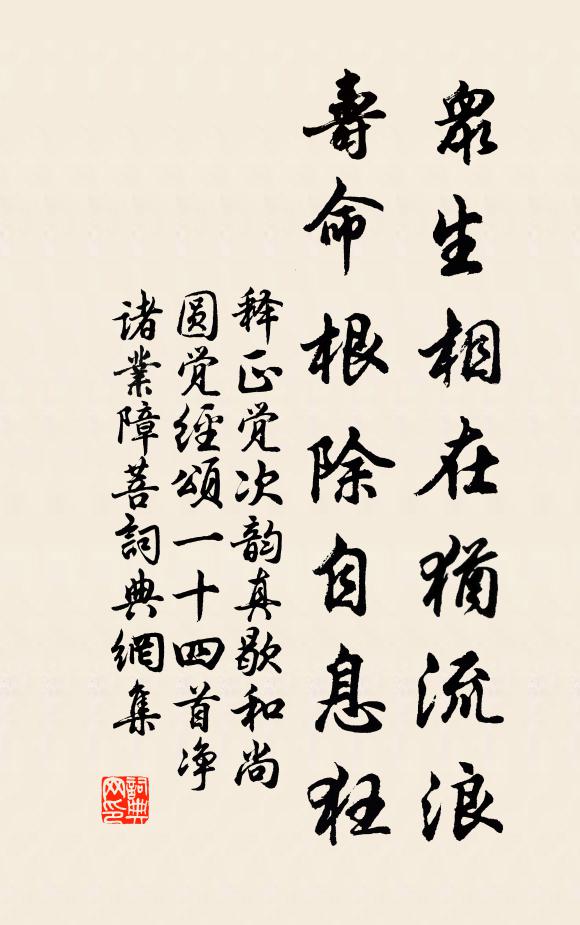 眾生相在猶流浪
壽命根除自息狂
释正覚次韵真歇和尚
圆覚經頌一十四首净
诸業障菩詞典網集
詞典
网印